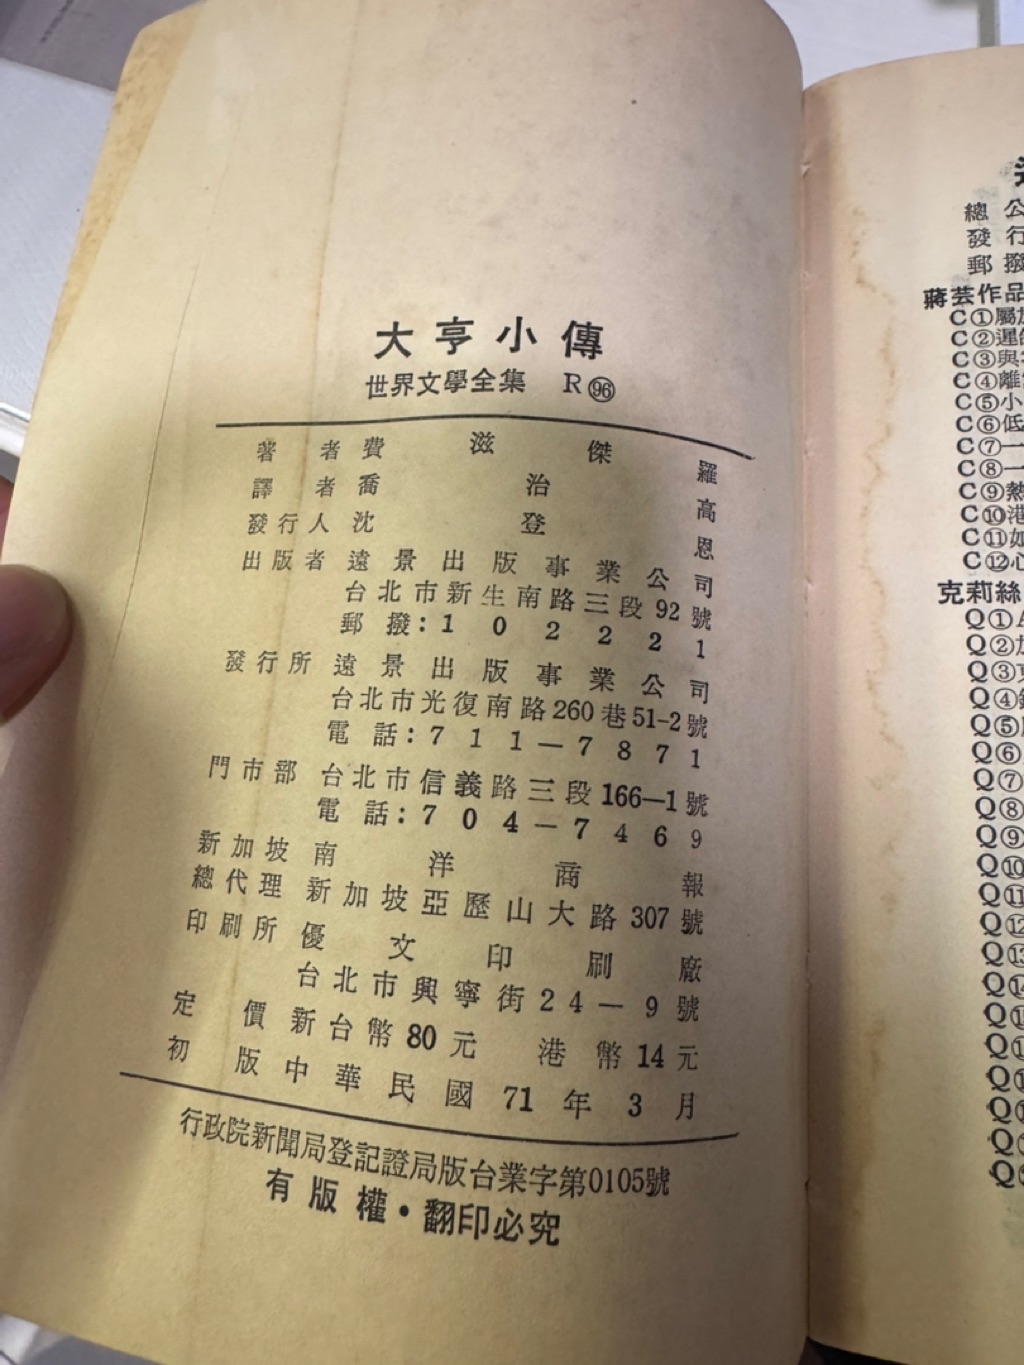 大亨小傳
世界文學全集 R㊗96
著者費滋傑羅
譯者喬治高
發行人沈登恩
出版者遠景出版事業公司
台北市新生南路三段92號
郵撥:102221
發行所遠景出版事業公司
台北市光復南路260巷51-2號
電話:711—7871
門市部 台北市信義路三段166—1號
電話:704—7469
新加坡南洋商報
總代理 新加坡亞歷山大路307號
印刷所優文印刷廠
台北市興寧街24—9號
定價新台幣80元 港幣14元
初版中華民國71年3月
行政院新聞局登記證局版台業字第0105號
有版權·翻印必究
總公
發行
郵撥
蔣芸作品
C①屬
C②遲
C③與
C④離
C⑤小
C⑥低
C⑦一
C⑧一
C⑨熱
C⑩港
C⑪如
C⑫心
克莉絲
Q①A
Q②加
Q③東
Q④
Q⑤
Q⑥
Q⑦
Q⑧
Q⑨
Q⑩
Q⑪
Q⑫
Q⑬
Q⑭